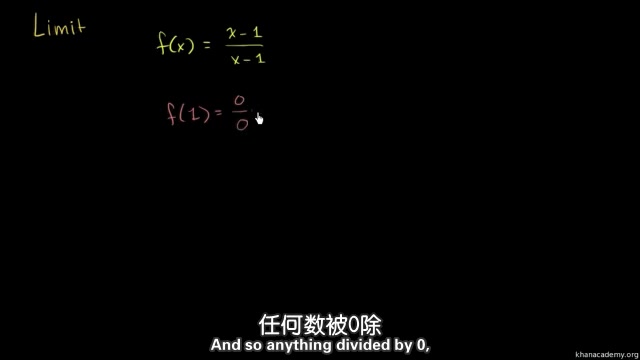 Limit
f(x) = x-1 / x-1
f(1) = 0 / 0
任何数被0除
And so anything divided by 0,
khanacademy.org